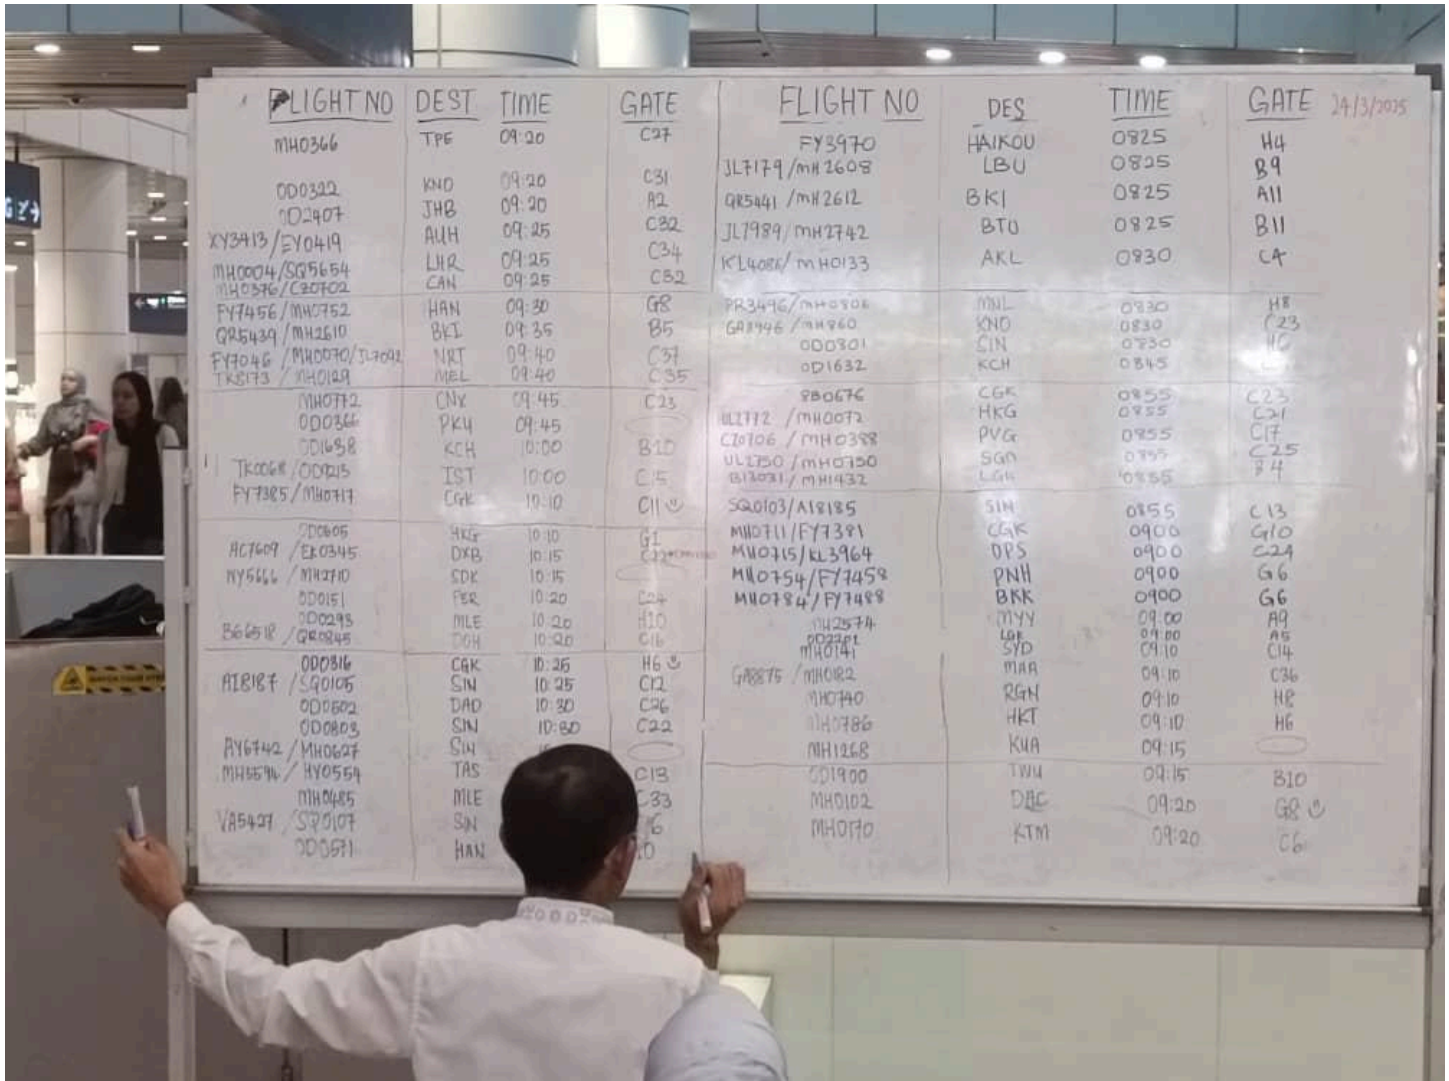 FLIGHT NO DEST TIME GATE
MH0366 TPE 09:20 C27
OD0322 KNO 09:20 C31
OD2407 JHB 09:20 A2
XY3413/EY0419 AUH 09:25 C32
MH0004/SQ5654 LHR 09:25 C34
MH0376/CZ0702 CAN 09:25 C32
FY7456/MH0752 HAN 09:30 G8
QR5439/MH2610 BKI 09:35 B5
FY7046/MH0070/JL7092 NRT 09:40 C37
TK8173/MH0129 MEL 09:40 C35
MH0772 CNX 09:45 C23
OD0366 PKU 09:45
OD1638 KCH 10:00 B10
TK0068/OD9213 IST 10:00 C15
FY7385/MH0717 CGK 10:10 C11 ☺
OD0605 HKG 10:10 G1
AC7609/EK0345 DXB 10:15 C22
NY5666/MH2710 SDK 10:15
OD0151 PER 10:20 C24
OD0293 MLE 10:20 H10
BG6518/QR0845 DOH 10:20 C16
OD0316 CGK 10:25 H6 ☺
AI8187/SQ0105 SIN 10:25 C12
OD0502 DAD 10:30 C26
OD0803 SIN 10:30 C22
AY6742/MH0627 SIN
MH5594/HY0554 TAS C13
MH0485 MLE C33
VA5427/SQ0107 SIN
OD0571 HAN
FLIGHT NO DES TIME GATE 24/3/2025
FY3970 HAIKOU 0825 H4
JL7179/MH2608 LBU 0825 B9
QR5441/MH2612 BKI 0825 A11
JL7989/MH2742 BTU 0825 B11
KL4086/MH0133 AKL 0830 C4
PR3496/MH0806 MNL 0830 H8
GA8946/MH860 KNO 0830 C23
OD0801 CIN 0830
OD1632 KCH 0845
8B0676 CGK 0855 C23
UL2772/MH0072 HKG 0855 C21
CZ0706/MH0388 PVG 0855 C17
UL2750/MH0750 SGN 0855 C25
BI3031/MH1432 LGK 0855 B4
SQ0103/AI8185 SIN 0855 C13
MH0711/FY7381 CGK 0900 G10
MH0715/KL3964 DPS 0900 C24
MH0754/FY7458 PNH 0900 G6
MH0784/FY7488 BKK 0900 G6
MH2574 MYY 09:00 A9
OD2201 LGK 09:00 A5
MH0141 SYD 09:10 C14
GA8875/MH0182 MAA 09:10 C36
MH0740 RGN 09:10 H8
MH0786 HKT 09:10 H6
MH1268 KUA 09:15
OD1900 TWU 09:15 B10
MH0102 DAC 09:20 G8 ☺
MH0170 KTM 09:20 C6